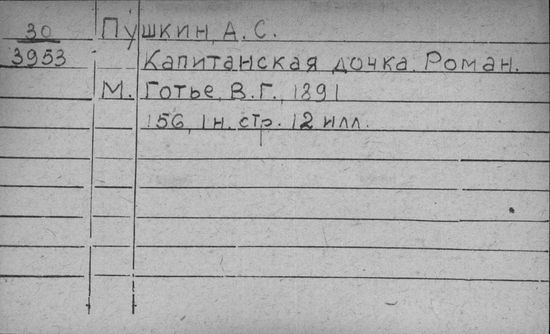 30 Пушкин, А. С.
3953 Капитанская дочка. Роман.
М. Готье, В. Г., 1891
156, 1 н. стр. 12 илл.